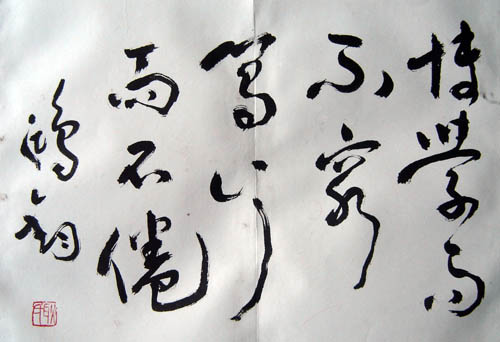 博學而
不窮
篤行
而不倦